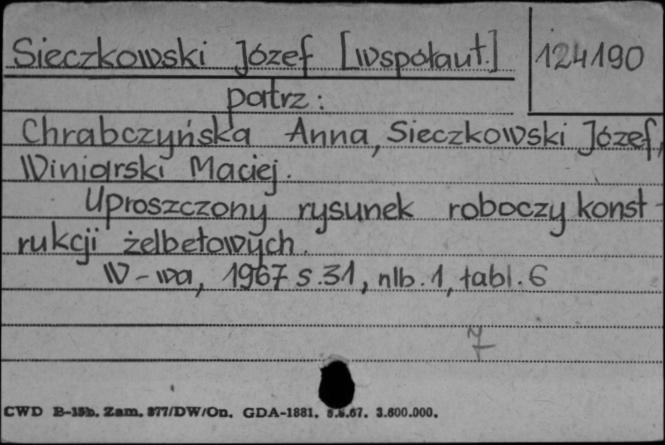 Sieczkowski Józef [współaut.] 124190
patrz:
Chrabczyńska Anna, Sieczkowski Józef,
Winiarski Maciej.
Uproszczony rysunek roboczy konst-
rukcji żelbetowych.
W-wa, 1967 s.31, nlb.1, tabl.6
7
CWD B-15b. Zam. 877/DW/On. GDA-1881. 5.5.67. 3.600.000.